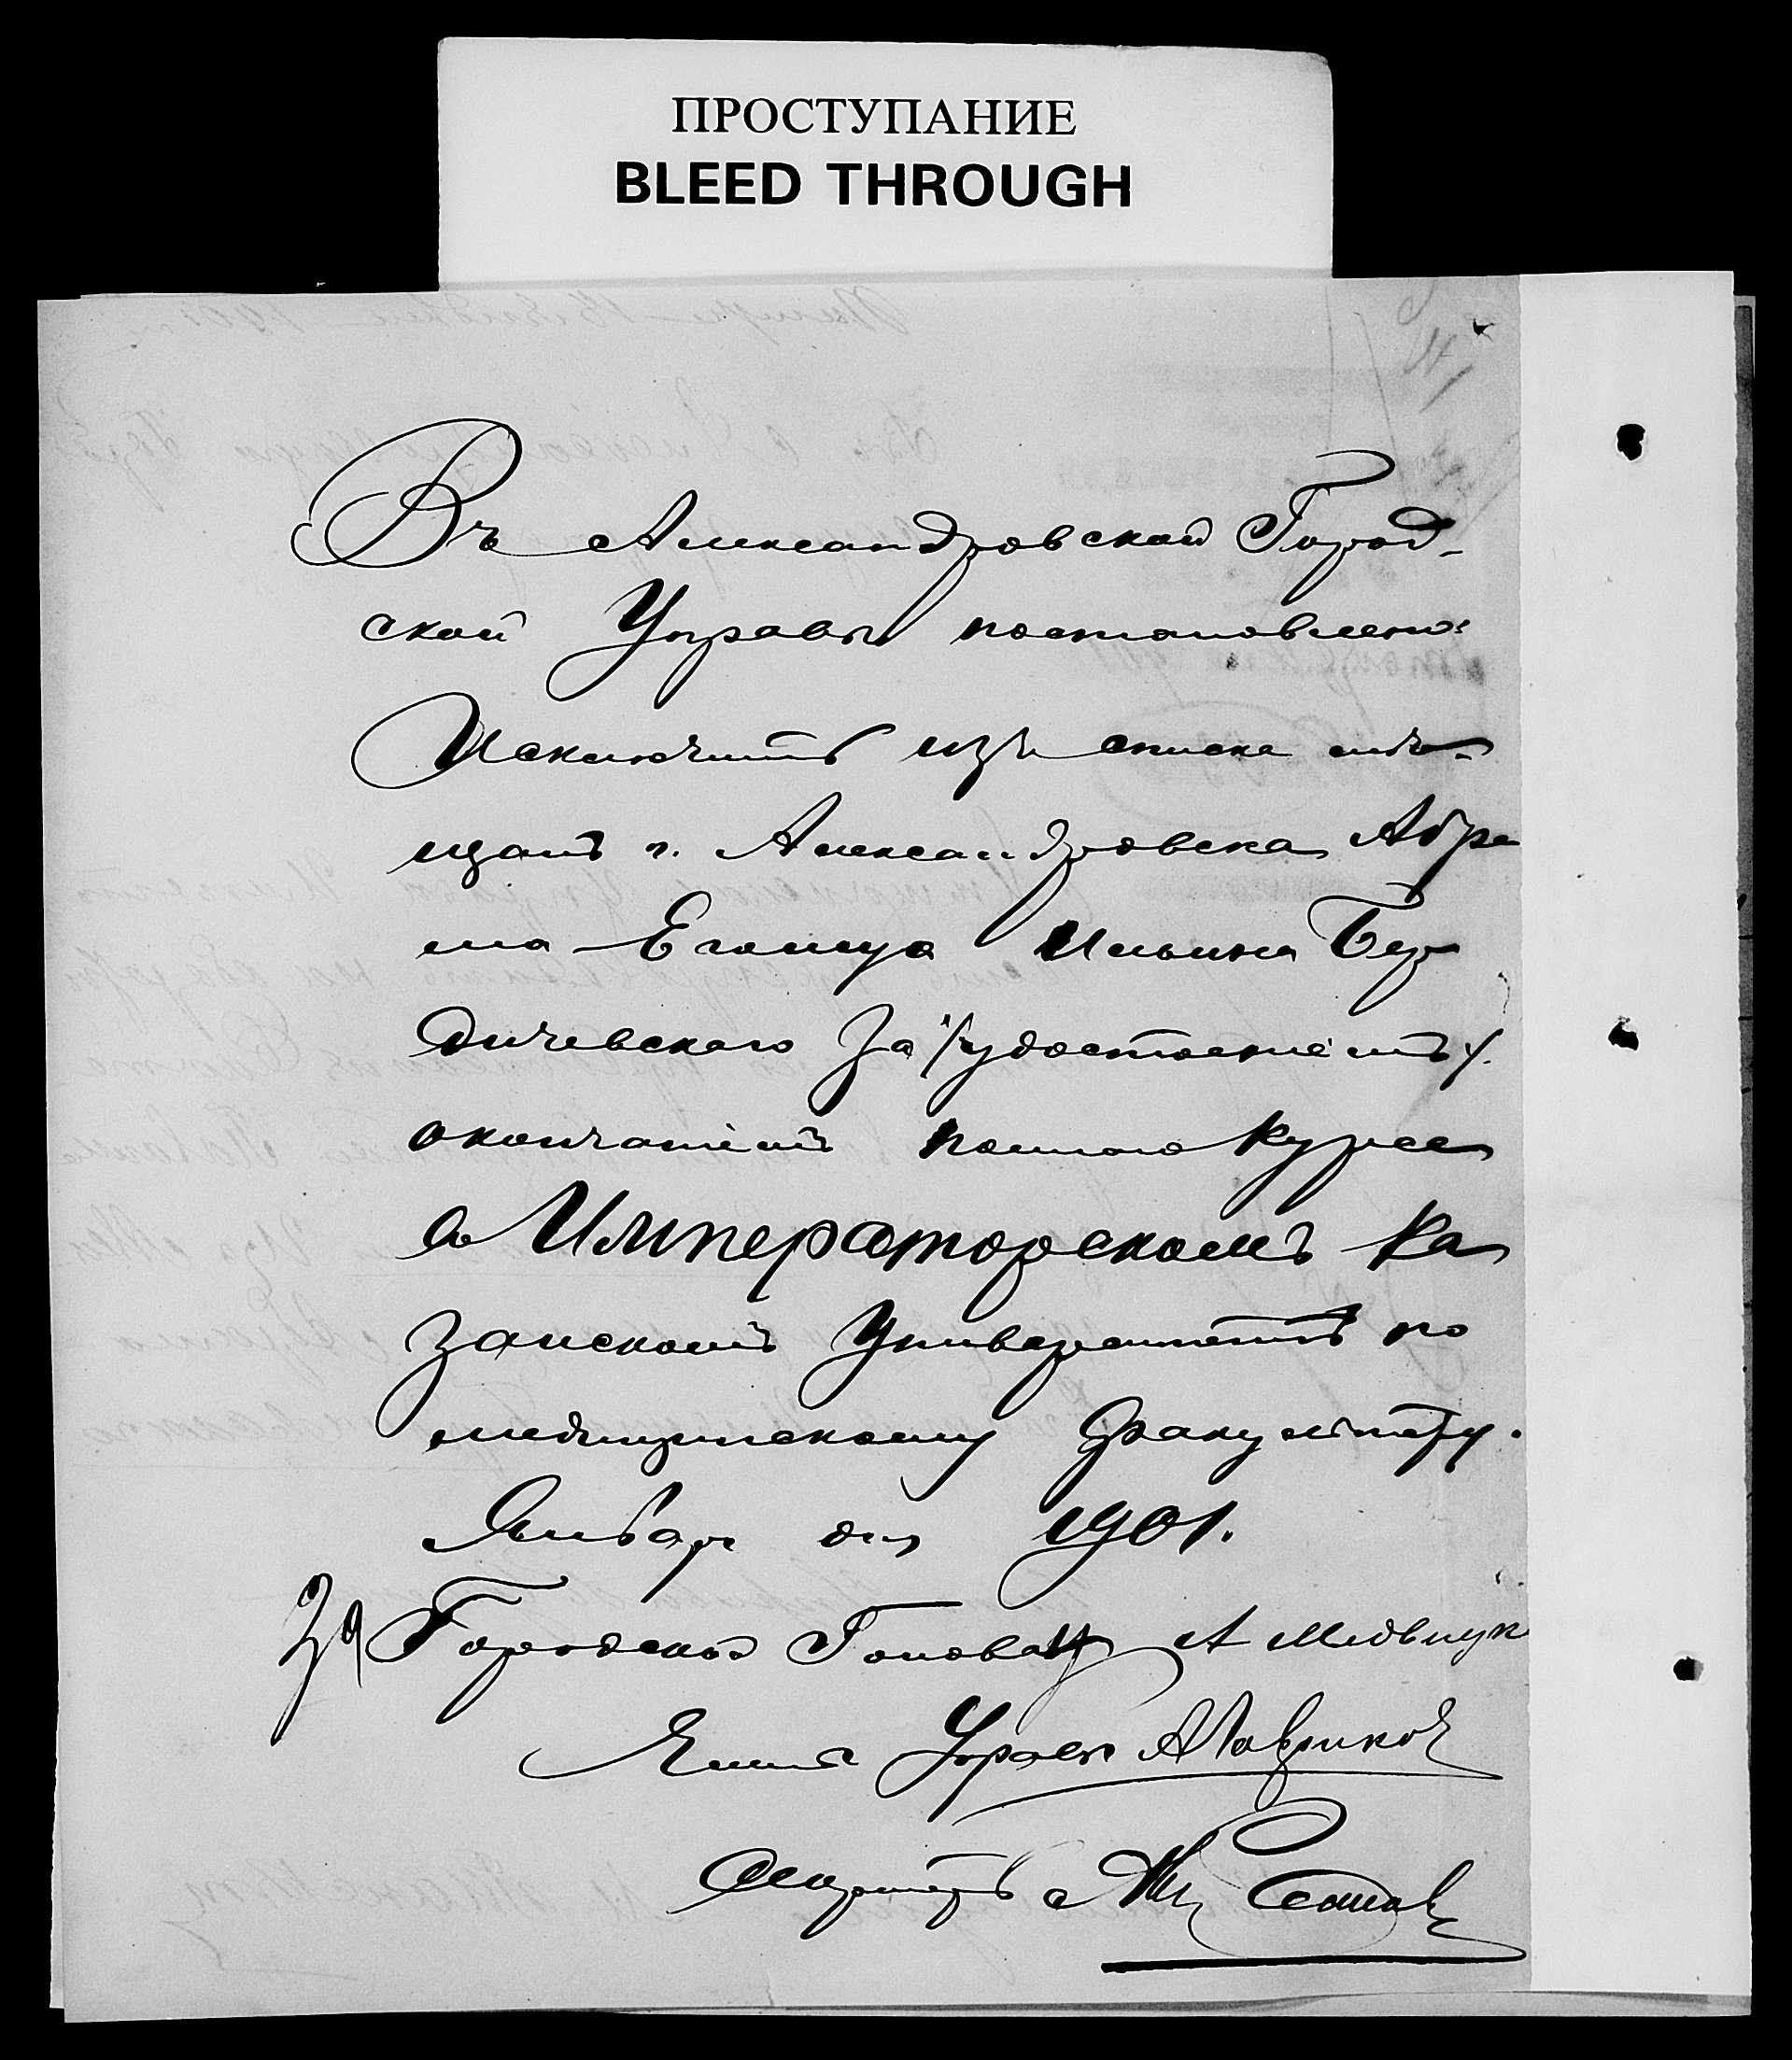 ПРОСТУПАНИЕ
BLEED THROUGH
Въ Александровской Город-
ской Управѣ постановлено:
Исключить изъ списка мѣ-
щанъ г. Александровска Абра
ма Егошуа Ильина Бер
дичевскаго за удостоеніемъ
окончаніемъ полнаго курса
в Императорскомъ Ка
занскомъ Университетѣ по
медицинскому факультету.
Январ дня 1901.
За Городского Голову А
Членъ Управы
Секретарь